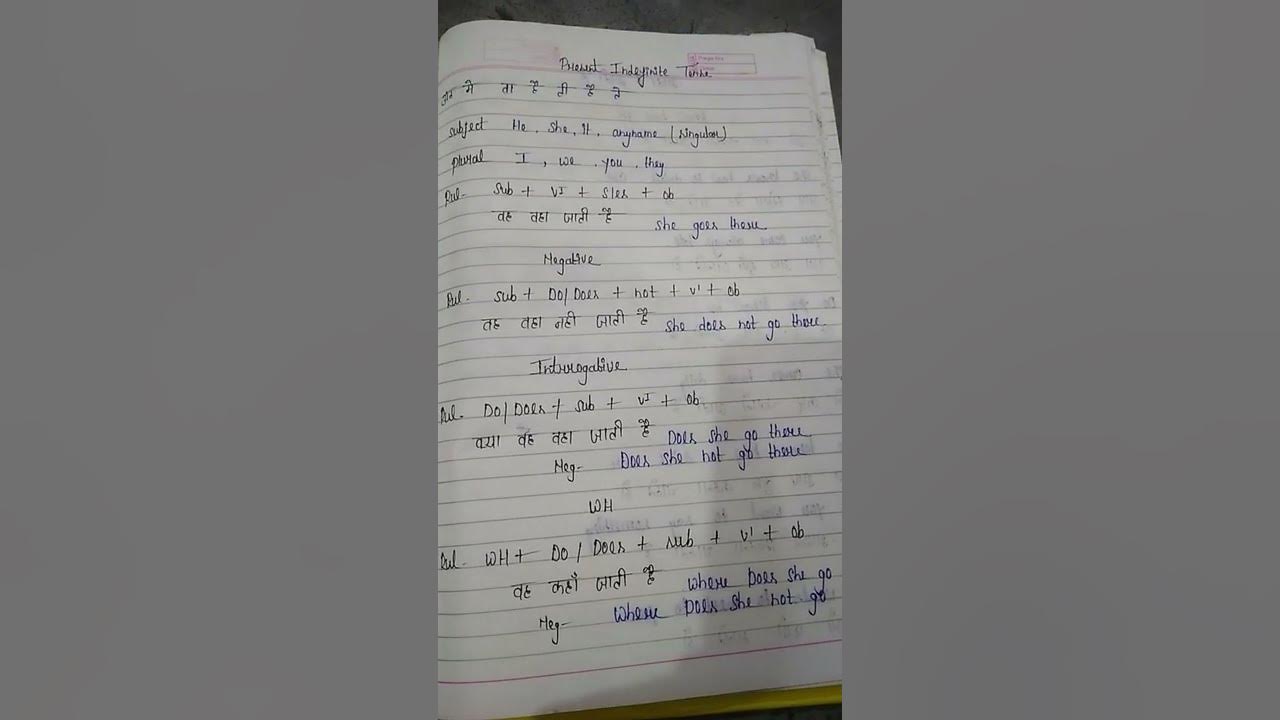 Present Indefinite Tense
अन्त मे ता है ती है ते
Subject He, She, It, anyname (singular)
plural I, we, you, they
Rul- Sub + VI + S/es + ob
वह वहा जाती है She goes there
Negative
Rul- sub + Do/Does + not + v1 + ob
वह वहा नही जाती है She does not go there.
Interogative
Rul- Do/Does + sub + vI + ob
क्या वह वहा जाती है Does she go there
Neg- Does she not go there
WH
Rul- WH + Do/Does + sub + v1 + ob
वह कहाँ जाती है where Does she go
Neg- where Does she not go